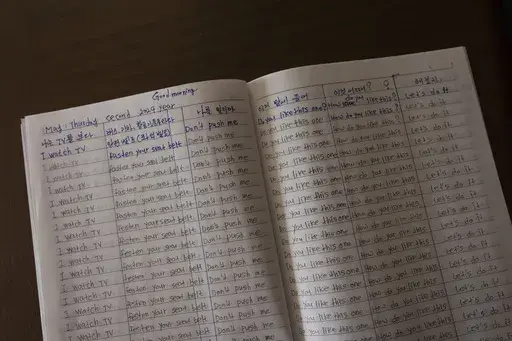 Good morning
May, Thursday cecond 2019 year
나는 TV를 본다
I watch TV fasten your seat belt Don't push me
I watch TV fasten your seat belt Don't push me
I watch TV fasten your seat belt Don't push me
I watch TV fasten your seat belt Don't push me
I watch TV fasten your seat belt Don't push me
I watch TV fasten your seat belt Don't push me
I watch TV fasten your seat belt Don't push me
I watch TV fasten your seat belt Don't push me
I watch TV fasten your seat belt Don't push me
I watch TV fasten your seat belt Don't push me
I watch TV fasten your seat belt Don't push me
I watch TV fasten your seat belt Don't push me
I watch TV fasten your seat belt Don't push me
I watch TV fasten your seat belt Don't push me
Do you like this one? How do you like this? Let's do it
Do you like this one How do you like this? Let's do it
Do you like this one How do you like this Let's do it
Do you like this one How do you like this Let's do it
Do you like this one How do you like this Let's do it
Do you like this one How do you like this Let's do it
Do you like this one How do you like this Let's do it
Do you like this one How do you like this Let's do it
Do you like this one How do you like this Let's do it
Do you like this one How do you like this Let's do it
Do you like this one How do you like this Let's do it
Do you like this one How do you like this Let's do it
Do you like this one How do you like this Let's do it
Do you like this one How do you like this Let's do it
Do you like this one How do you like this Let's do it
Do you like this one How do you like this Let's do it